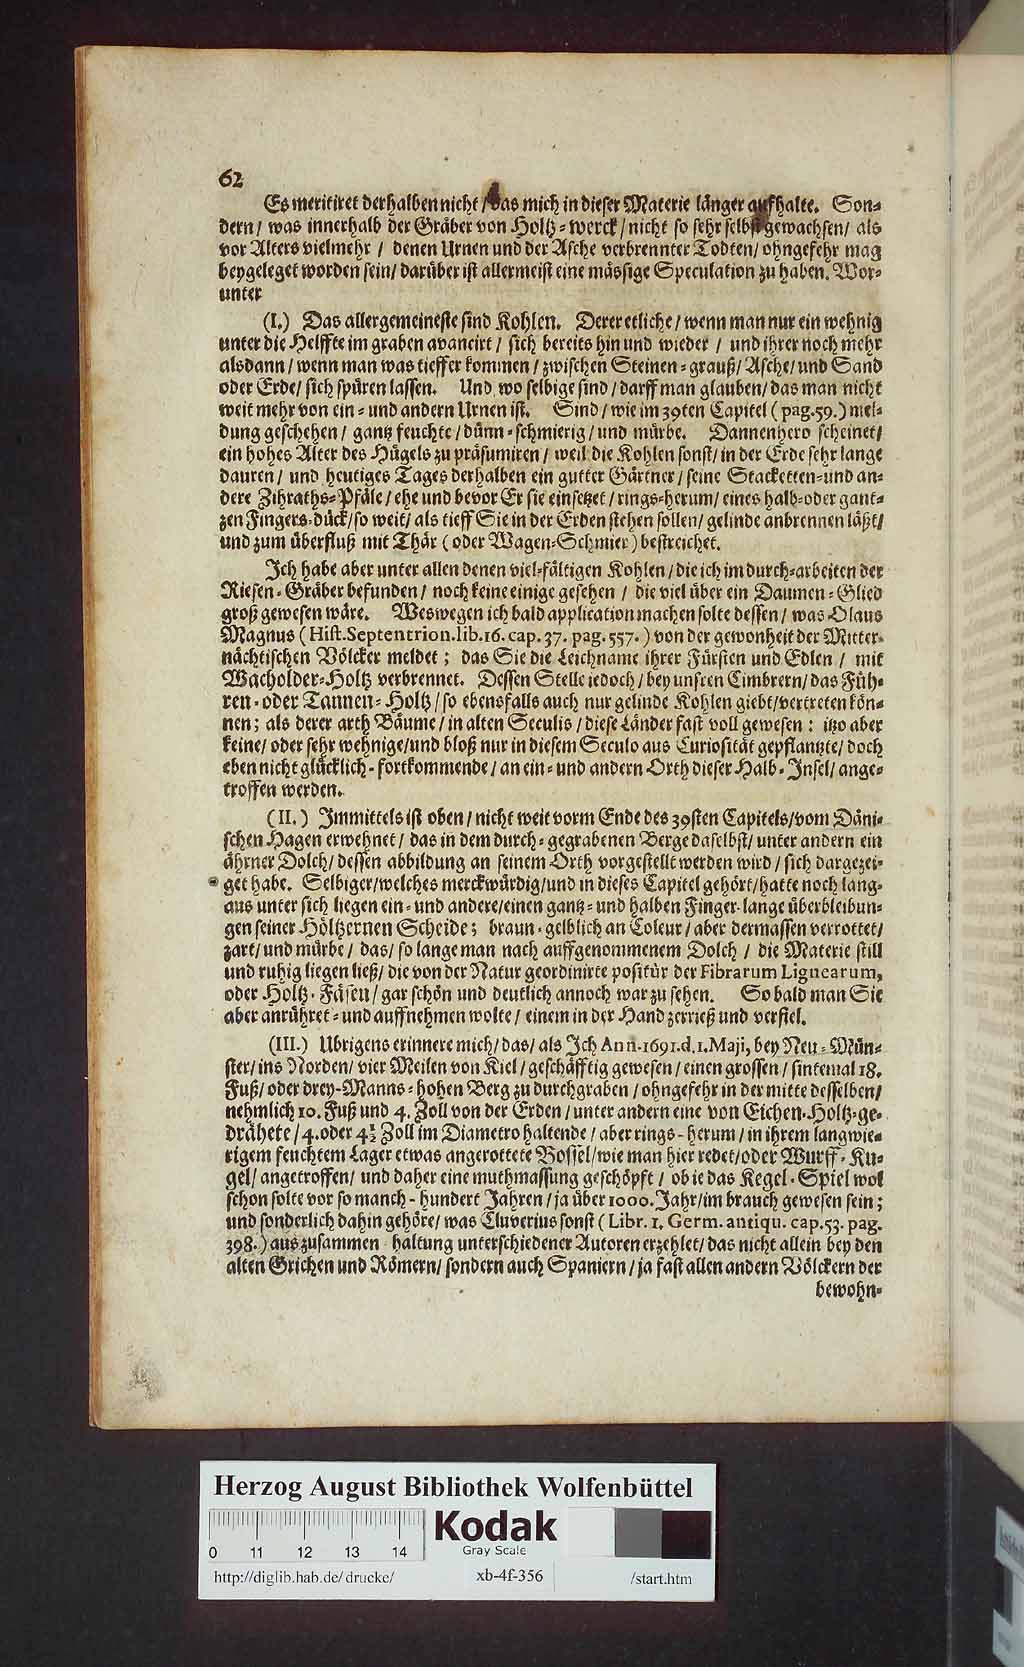 62
Es meritiret derhalben nicht / das mich in dieser Materie länger aufhalte. Son-
dern / was innerhalb der Gräber von Holtz-werck / nicht so sehr selbst gewachsen / als
vor Alters vielmehr / denen Urnen und der Asche verbrennter Todten / ohngefehr mag
beygeleget worden sein / darüber ist allermeist eine mässige Speculation zu haben. Wor-
unter
(I.) Das allergemeineste sind Kohlen. Derer etliche / wenn man nur ein wehnig
unter die Helffte im graben avancirt / sich bereits hin und wieder / und ihrer noch mehr
alsdann / wenn man was tieffer kommen / zwischen Steinen-grauß / Asche / und Sand
oder Erde / sich spüren lassen. Und wo selbige sind / darff man glauben / das man nicht
weit mehr von ein- und andern Urnen ist. Sind / wie im 39ten Capitel ( pag. 59. ) mel-
dung geschehen / gantz feuchte / dünn-schmierig / und mürbe. Dannenhero scheinet /
ein hohes Alter des Hügels zu präsumiren / weil die Kohlen sonst / in der Erde sehr lange
dauren / und heutiges Tages derhalben ein gutter Gärtner / seine Stacketten- und an-
dere Zihraths-Pfäle / ehe und bevor Er sie einsetzet / rings-herum / eines halb- oder gant-
zen Fingers-dück / so weit / als tieff Sie in der Erden stehen sollen / gelinde anbrennen läßt /
und zum überfluß mit Thär ( oder Wagen-Schmier ) bestreichet.
Ich habe aber unter allen denen viel-fältigen Kohlen / die ich im durch-arbeiten der
Riesen-Gräber befunden / noch keine einige gesehen / die viel über ein Daumen-Glied
groß gewesen wäre. Weswegen ich bald application machen solte dessen / was Olaus
Magnus ( Hist. Septentrion. lib. 16. cap. 37. pag. 557. ) von der gewonheit der Mitter-
nächtischen Völcker meldet ; das Sie die Leichname ihrer Fürsten und Edlen / mit
Wacholder-Holtz verbrennet. Dessen Stelle jedoch / bey unsren Cimbrern / das Füh-
ren- oder Tannen-Holtz / so ebensfalls auch nur gelinde Kohlen giebt / vertreten kön-
nen ; als derer arth Bäume / in alten Seculis / diese Länder fast voll gewesen : itzo aber
keine / oder sehr wehnige / und bloß nur in diesem Seculo aus Curiosität gepflantzte / doch
eben nicht glücklich-fortkommende / an ein- und andern Orth dieser Halb-Insel / ange-
troffen werden.
(II.) Immittels ist oben / nicht weit vorm Ende des 39sten Capitels / vom Däni-
schen Hagen erwehnet / das in dem durch-gegrabenen Berge daselbst / unter andern ein
ährner Dolch / dessen abbildung an seinem Orth vorgestellt werden wird / sich dargezei-
get habe. Selbiger / welches merckwürdig / und in dieses Capitel gehört / hatte noch lang-
aus unter sich liegen ein- und andere / einen gantz- und halben Finger-lange überbleibun-
gen seiner Höltzernen Scheide ; braun-gelblich an Coleur / aber dermassen verrottet /
zart / und mürbe / das / so lange man nach auffgenommenem Dolch / die Materie still
und ruhig liegen ließ / die von der Natur geordinirte positùr der Fibrarum Lignearum,
oder Holtz-Fäsen / gar schön und deutlich annoch war zu sehen. So bald man Sie
aber anrühret- und auffnehmen wolte / einem in der Hand zerrieß und verfiel.
(III.) Ubrigens erinnere mich / das / als Ich Ann. 1691. d. 1. Maji, bey Neu-Mün-
ster / ins Norden / vier Meilen von Kiel / geschäfftig gewesen / einen grossen / sintemal 18.
Fuß / oder drey-Manns-hohen Berg zu durchgraben / ohngefehr in der mitte desselben /
nehmlich 10. Fuß und 4. Zoll von der Erden / unter andern eine von Eichen-Holtz-ge-
drähete / 4. oder 4½ Zoll im Diametro haltende / aber rings-herum / in ihrem langwie-
rigem feuchtem Lager etwas angerottete Bossel / wie man hier redet / oder Wurff-Ku-
gel / angetroffen / und daher eine muthmassung geschöpft / ob ie das Kegel-Spiel wol
schon solte vor so manch-hundert Jahren / ja über 1000. Jahr / im brauch gewesen sein ;
und sonderlich dahin gehöre / was Cluverius sonst ( Libr. 1. Germ. antiqu. cap. 53. pag.
398. ) aus zusammen-haltung unterschiedener Autoren erzehlet / das nicht allein bey den
alten Grichen und Römern / sondern auch Spaniern / ja fast allen andern Völckern der
bewohn-
Herzog August Bibliothek Wolfenbüttel
Kodak
Gray Scale
0 11 12 13 14
http://diglib.hab.de/drucke/ xb-4f-356 /start.htm